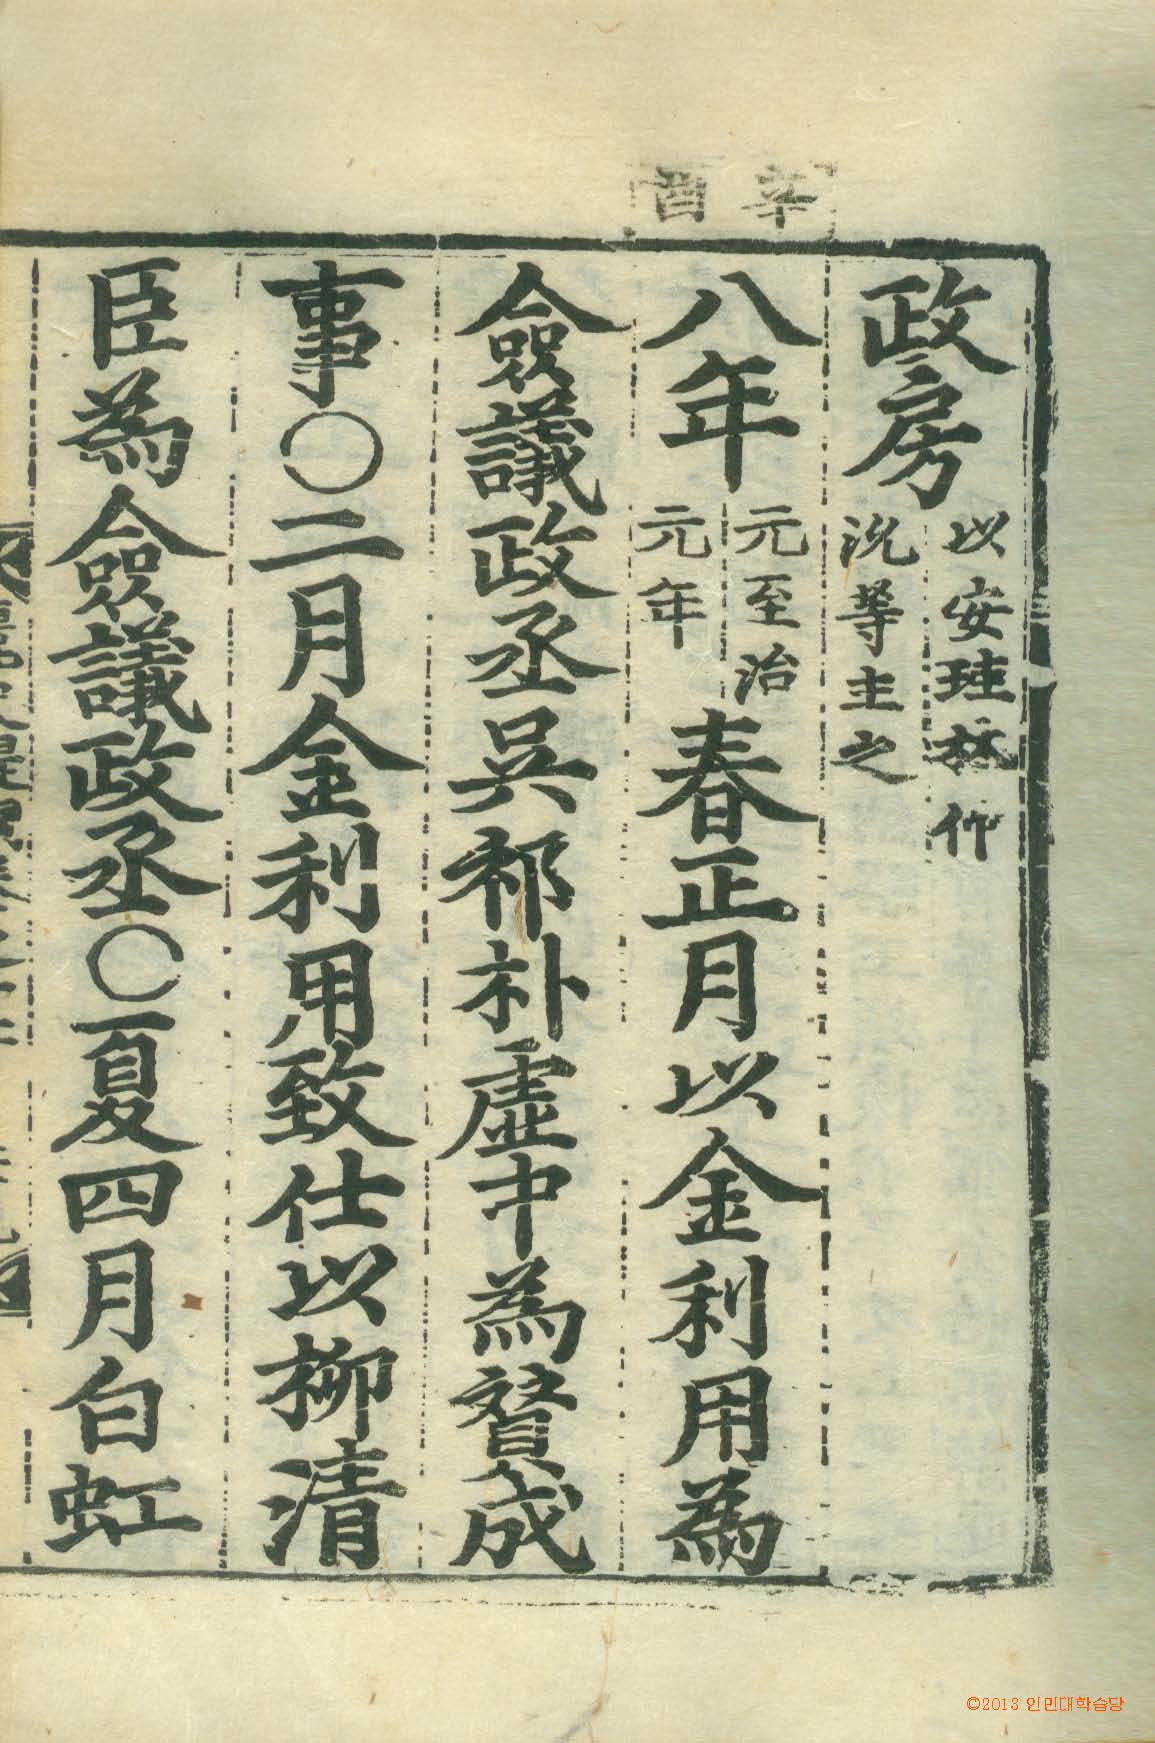 辛酉
政房以安珪林仲沇等主之
八年元至治元年春正月以金利用為
僉議政丞吳祁朴虛中為贊成
事〇二月金利用致仕以柳清
臣為僉議政丞〇夏四月白虹
©2013 인민대학습당